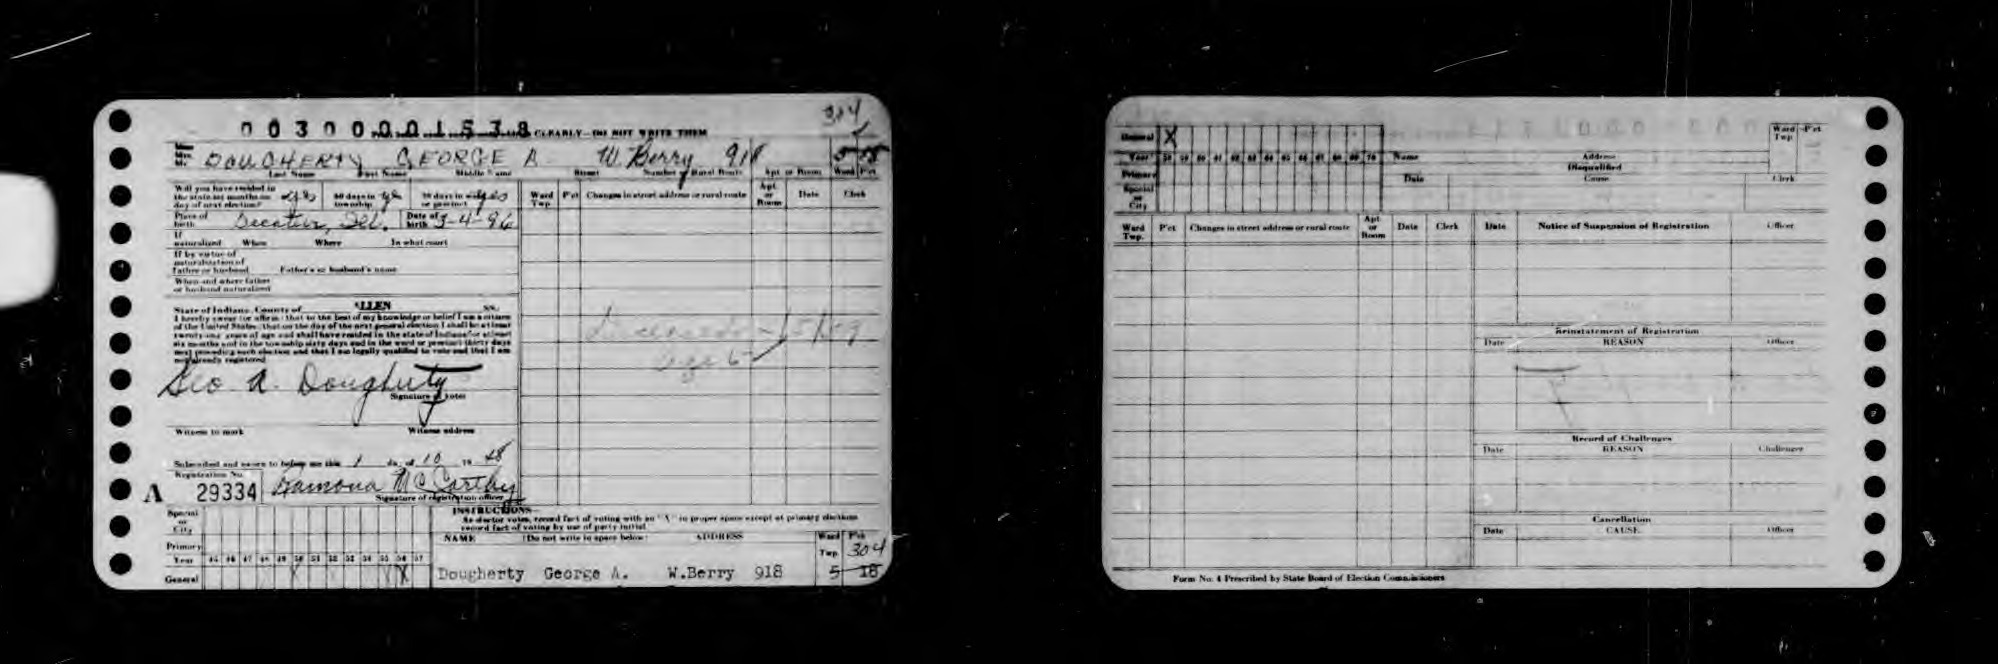 304
00300001538 CLEARLY—DO NOT WRITE THEM
DOUGHERTY GEORGE A W. Berry 918 5 18
Last Name First Name Middle Name Street Number or Rural Route Apt or Room Ward P'ct
Will you have resided in the state six months on day of next election? yes 60 days in township yes 30 days in ward or precinct yes
Ward Twp P'ct Changes in street address or rural route Apt or Room Date Clerk
Place of birth Decatur, Ill. Date of birth 3-4-96
If naturalized When Where In what court
If by virtue of naturalization of Father or husband Father's or husband's name
When and where father or husband naturalized
State of Indiana, County of ALLEN SS.
I hereby swear (or affirm) that to the best of my knowledge or belief I am a citizen
of the United States; that on the day of the next general election I shall be at least
twenty-one years of age and shall have resided in the state of Indiana for at least
six months and in the township sixty days and in the ward or precinct thirty days
next preceding such election and that I am legally qualified to vote and that I am
not already registered
Geo A. Dougherty
Signature of voter
Witness to mark Witness address
Subscribed and sworn to before me this 1 da. of 10 19 48
Registration No.
A 29334 Ramona McCarthy
Signature of registration officer
INSTRUCTIONS
As elector votes, record fact of voting with an "X" in proper space except at primary elections
record fact of voting by use of party initial.
NAME (Do not write in space below) ADDRESS Ward Twp. P'ct
304
Dougherty George A. W.Berry 918 5 18
Special or City
Primary
Year 45 46 47 48 49 50 51 52 53 54 55 56 57
General X X
General X
Year 58 59 60 61 62 63 64 65 66 67 68 69 70
Primary
Special or City
Name Address Ward Twp. P'ct
Disqualified
Date Cause Clerk
Ward Twp. P'ct Changes in street address or rural route Apt or Room Date Clerk
Date Notice of Suspension of Registration Officer
Reinstatement of Registration
Date REASON Officer
Record of Challenges
Date REASON Challenger
Cancellation
Date CAUSE Officer
Form No. 4 Prescribed by State Board of Election Commissioners